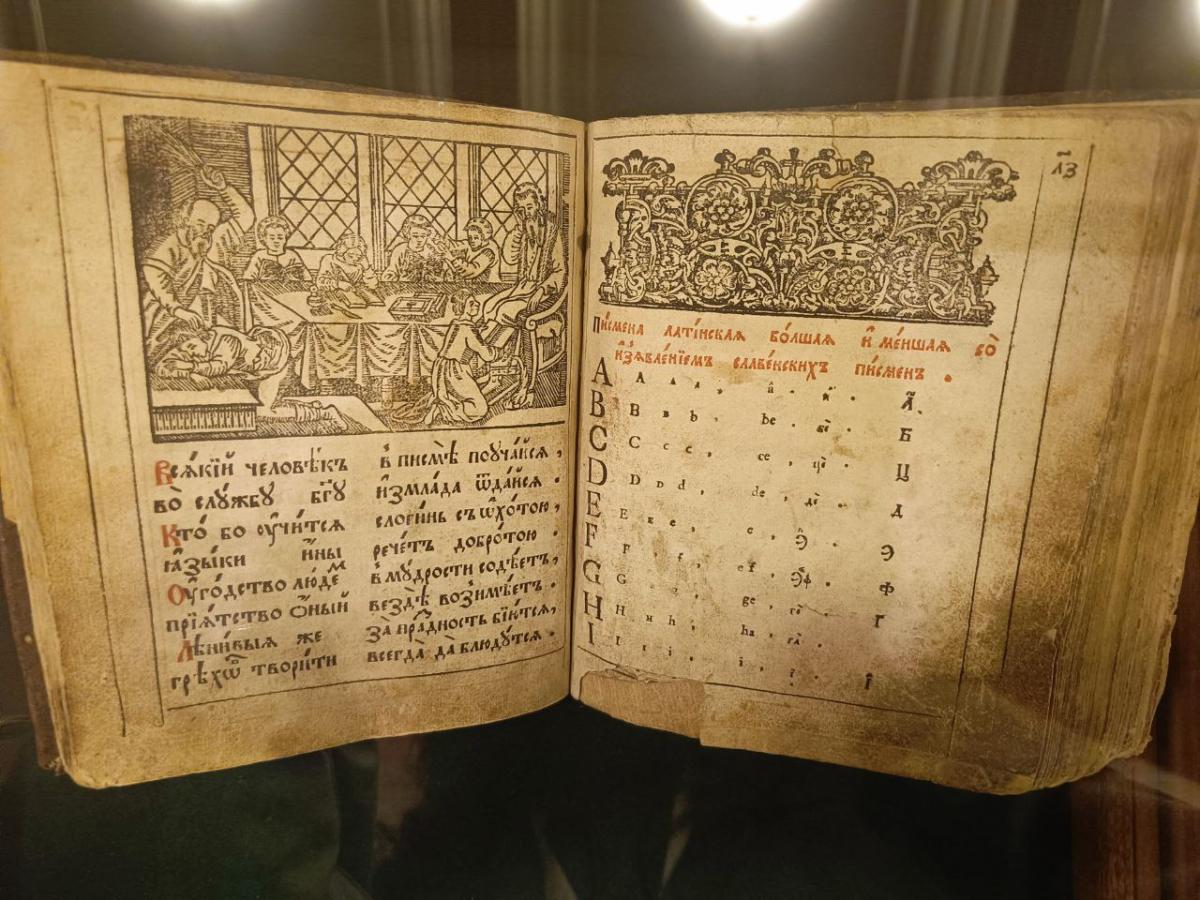 Всѧ́кїй человѣ́къ в писмѣ̀ поуча́йсѧ,
во слꙋ́жбꙋ бг҃ꙋ и҆змла́да ѿда́йсѧ.
Кто́ бо оу҆чи́тсѧ слоги́нь съ ѻ҆хо́тою,
ꙗ҆зы́ки и҆́ны рече́тъ добро́тою.
Оу҆го́дство лю́дем в мꙋ́дрости содѣ́етъ,
прїѧ́тство вездѐ вози́мѣетъ.
Лѣни́выѧ же за пра́здность бїю́тсѧ,
грѣхѡ́въ твори́ти всегда̀ да блюдꙋ́тсѧ.
л҃з
Пи́смена лати́нскаѧ бо́лшаѧ и҆ ме́ншаѧ со
и҆з̾ѧвле́нїемъ славе́нскихъ пи́сменъ.
A A a a, а҆̀. А
B B b b, be, бе. Б
C C c c, ce, це. Ц
D D d, de, де. Д
E E e, e, Э. Э
F F f, ef, Эф. Ф
G G g, ge, ге. Г
H H h, ha, га.
I I i, i, і. І